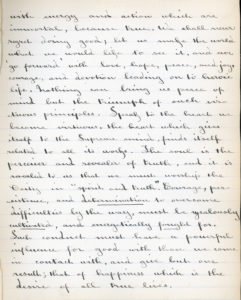 with energy and action which are
immortal, because true. We shall never
regret doing good; let us make the world
what we would like to see it, and now
go forward with love, hope, peace, and joy,
courage, and devotion leading on to heroic
life. Nothing can bring us peace of
mind but the triumph of such vir-
tuous principles. Speak to the heart we
become virtuous, the heart which gives
itself to the Supreme mind, finds itself
related to all its works. The soul is the
perceiver and revealer of truth, and it is
revealed to us that we must worship the
Deity in "spirit and truth." Courage, per-
sistence, and determination to overcome
difficulties by the way, must be zealously
cultivated, and energetically fought for.
Such conduct must have a powerful
influence for good with those we come
in contact with, and give but one
result; that of happiness which is the
desire of all true lives.